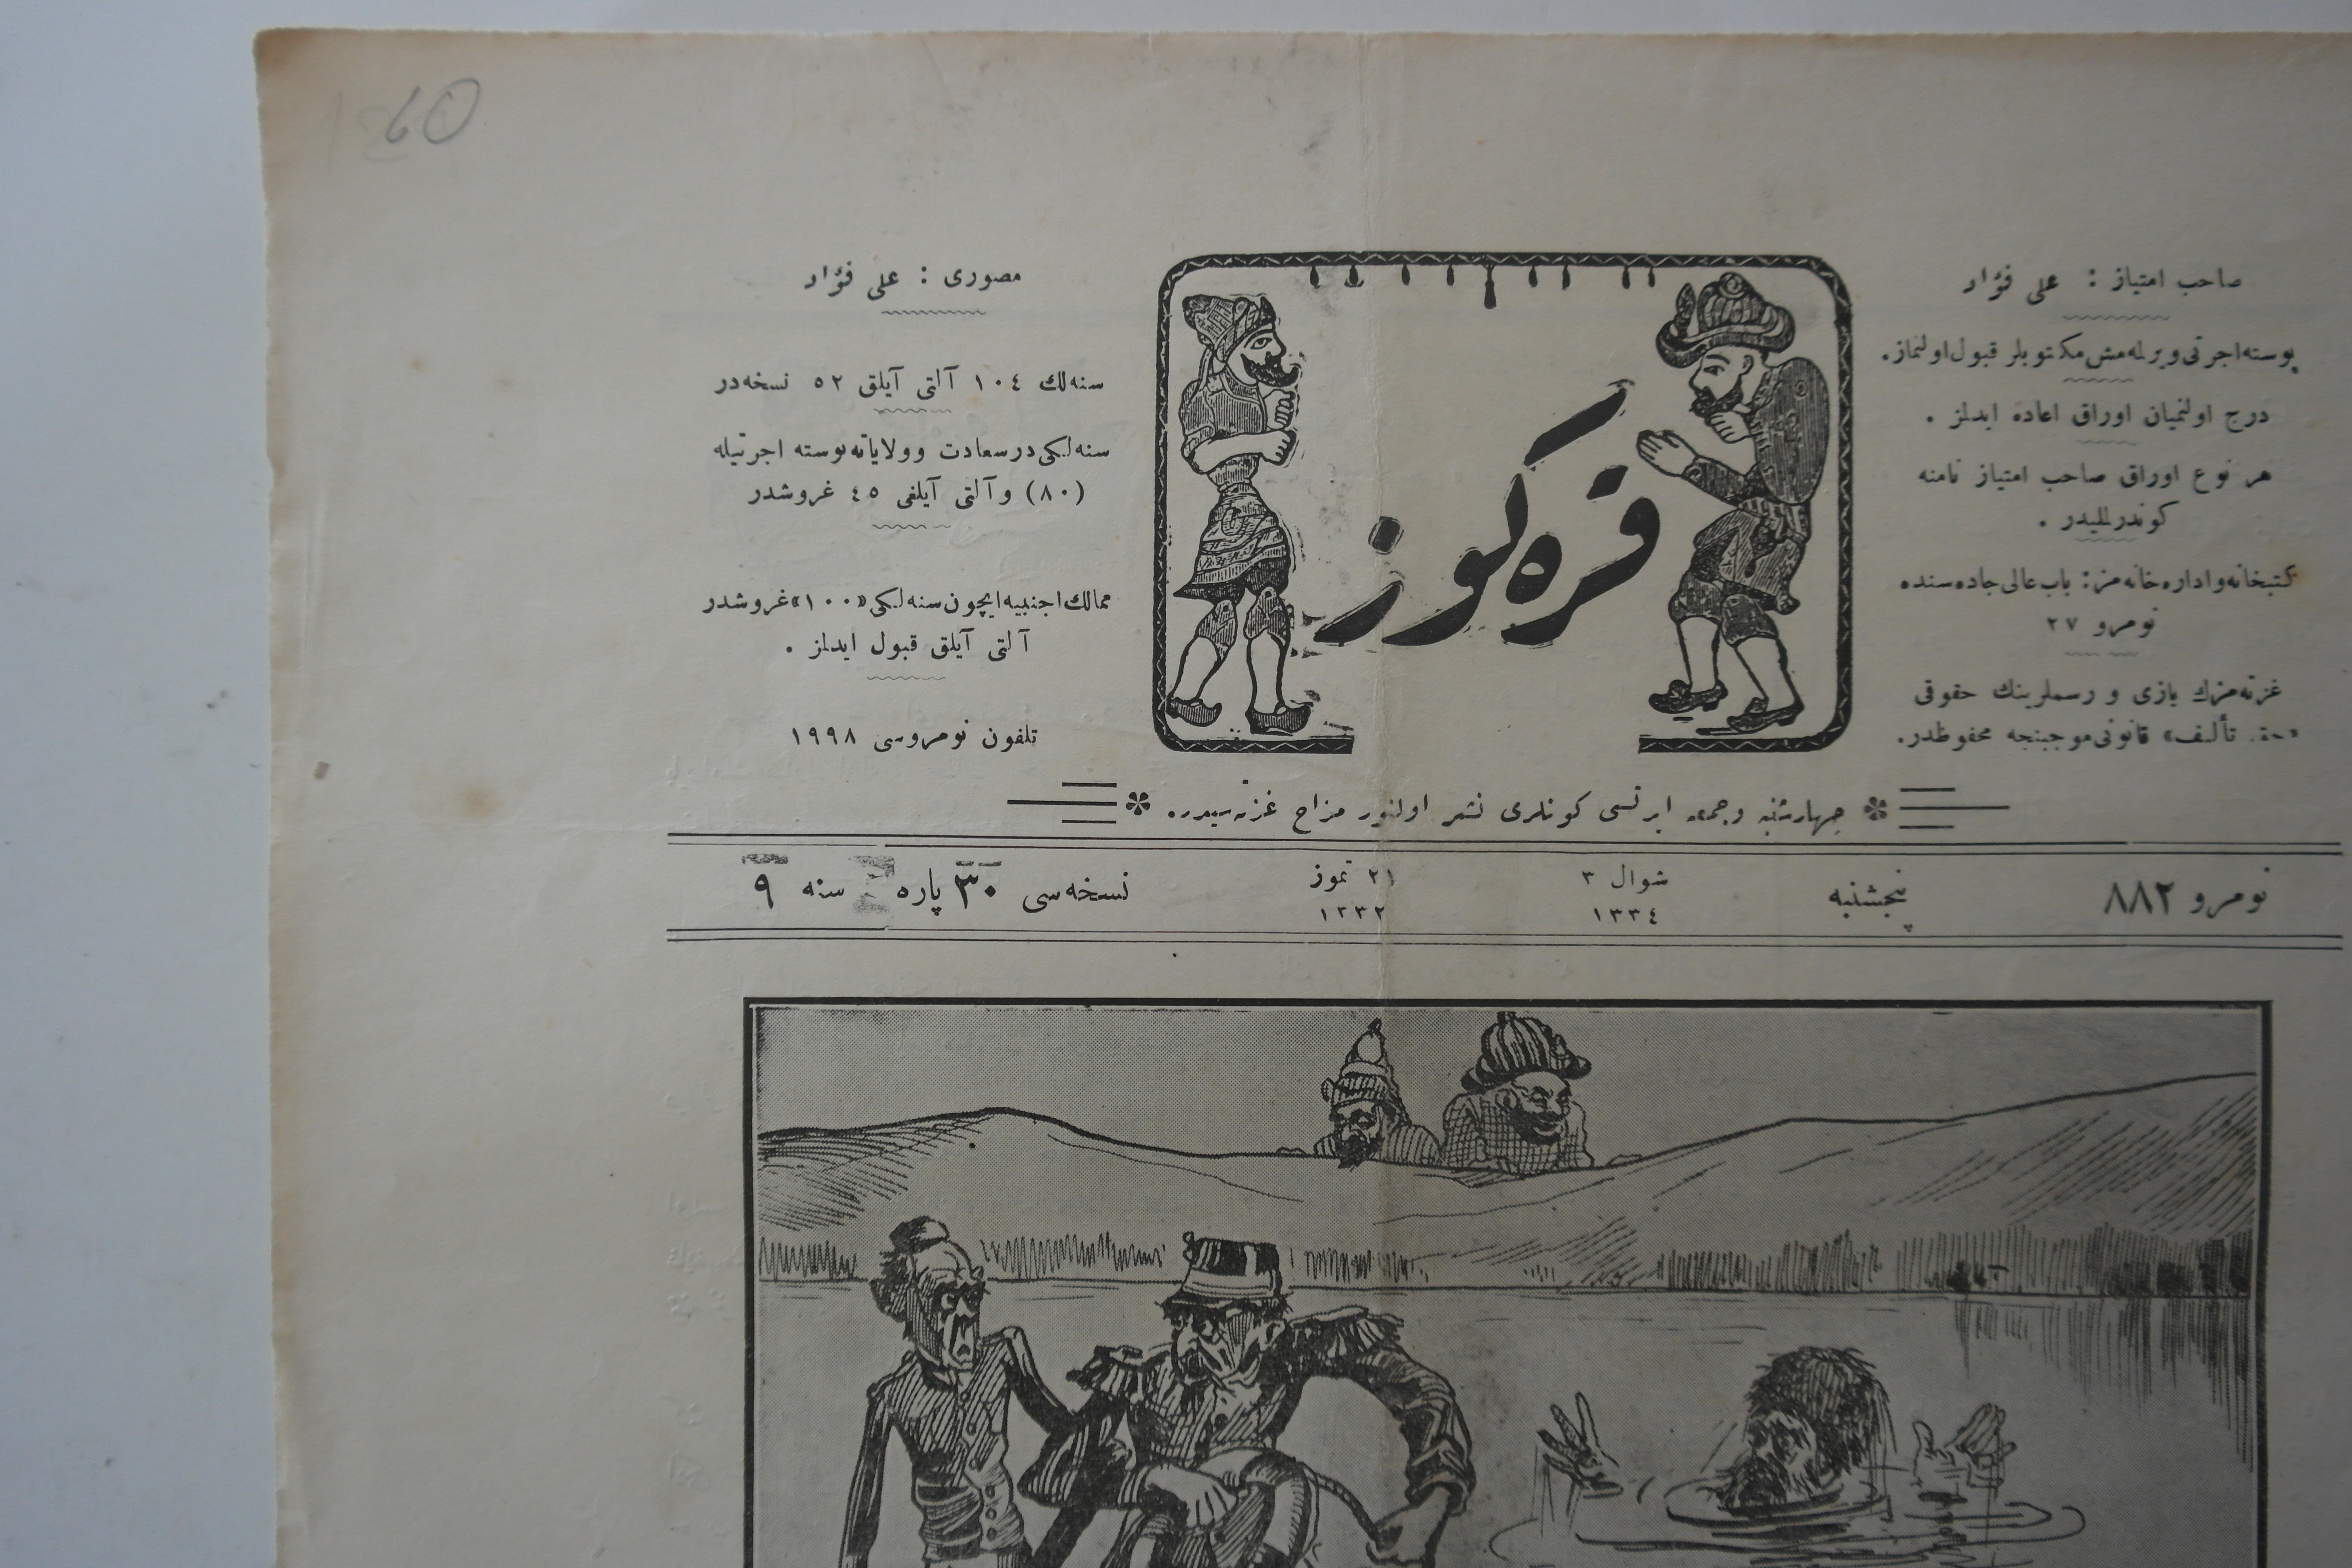 صاحب امتیاز : علی فؤاد
پوسته اجرتی ویرلمه‌مش مکتوبلر قبول اولنماز.
درج اولنمیان اوراق اعاده ایدلز .
هر نوع اوراق صاحب امتیاز نامنه
کوندرلملیدر .
کتبخانه و اداره‌خانه‌مز : باب عالی جاده‌سنده
نومرو ٢٧
غزته‌مزك یازی و رسملرینك حقوقی
«حق تألیف» قانونی موجبنجه محفوظدر.
قره‌کوز
مصوری : علی فؤاد
سنه‌لك ١٠٤ آلتی آیلق ٥٢ نسخه‌در
سنه‌لکی درسعادت و ولایاته پوسته اجرتیله
(٨٠) و آلتی آیلغی ٤٥ غروشدر
ممالك اجنبیه ایچون سنه‌لکی «١٠٠» غروشدر
آلتی آیلق قبول ایدلز .
تلفون نومروسی ١٩٩٨
چهارشنبه و جمعه ایرتسی کونلری نشر اولنور مزاح غزته‌سیدر
نومرو ٨٨٢ پنجشنبه شوال ٣ ١٣٣٤ ٢١ تموز ١٣٣٢ نسخه‌سی ٣٠ پاره سنه ٩